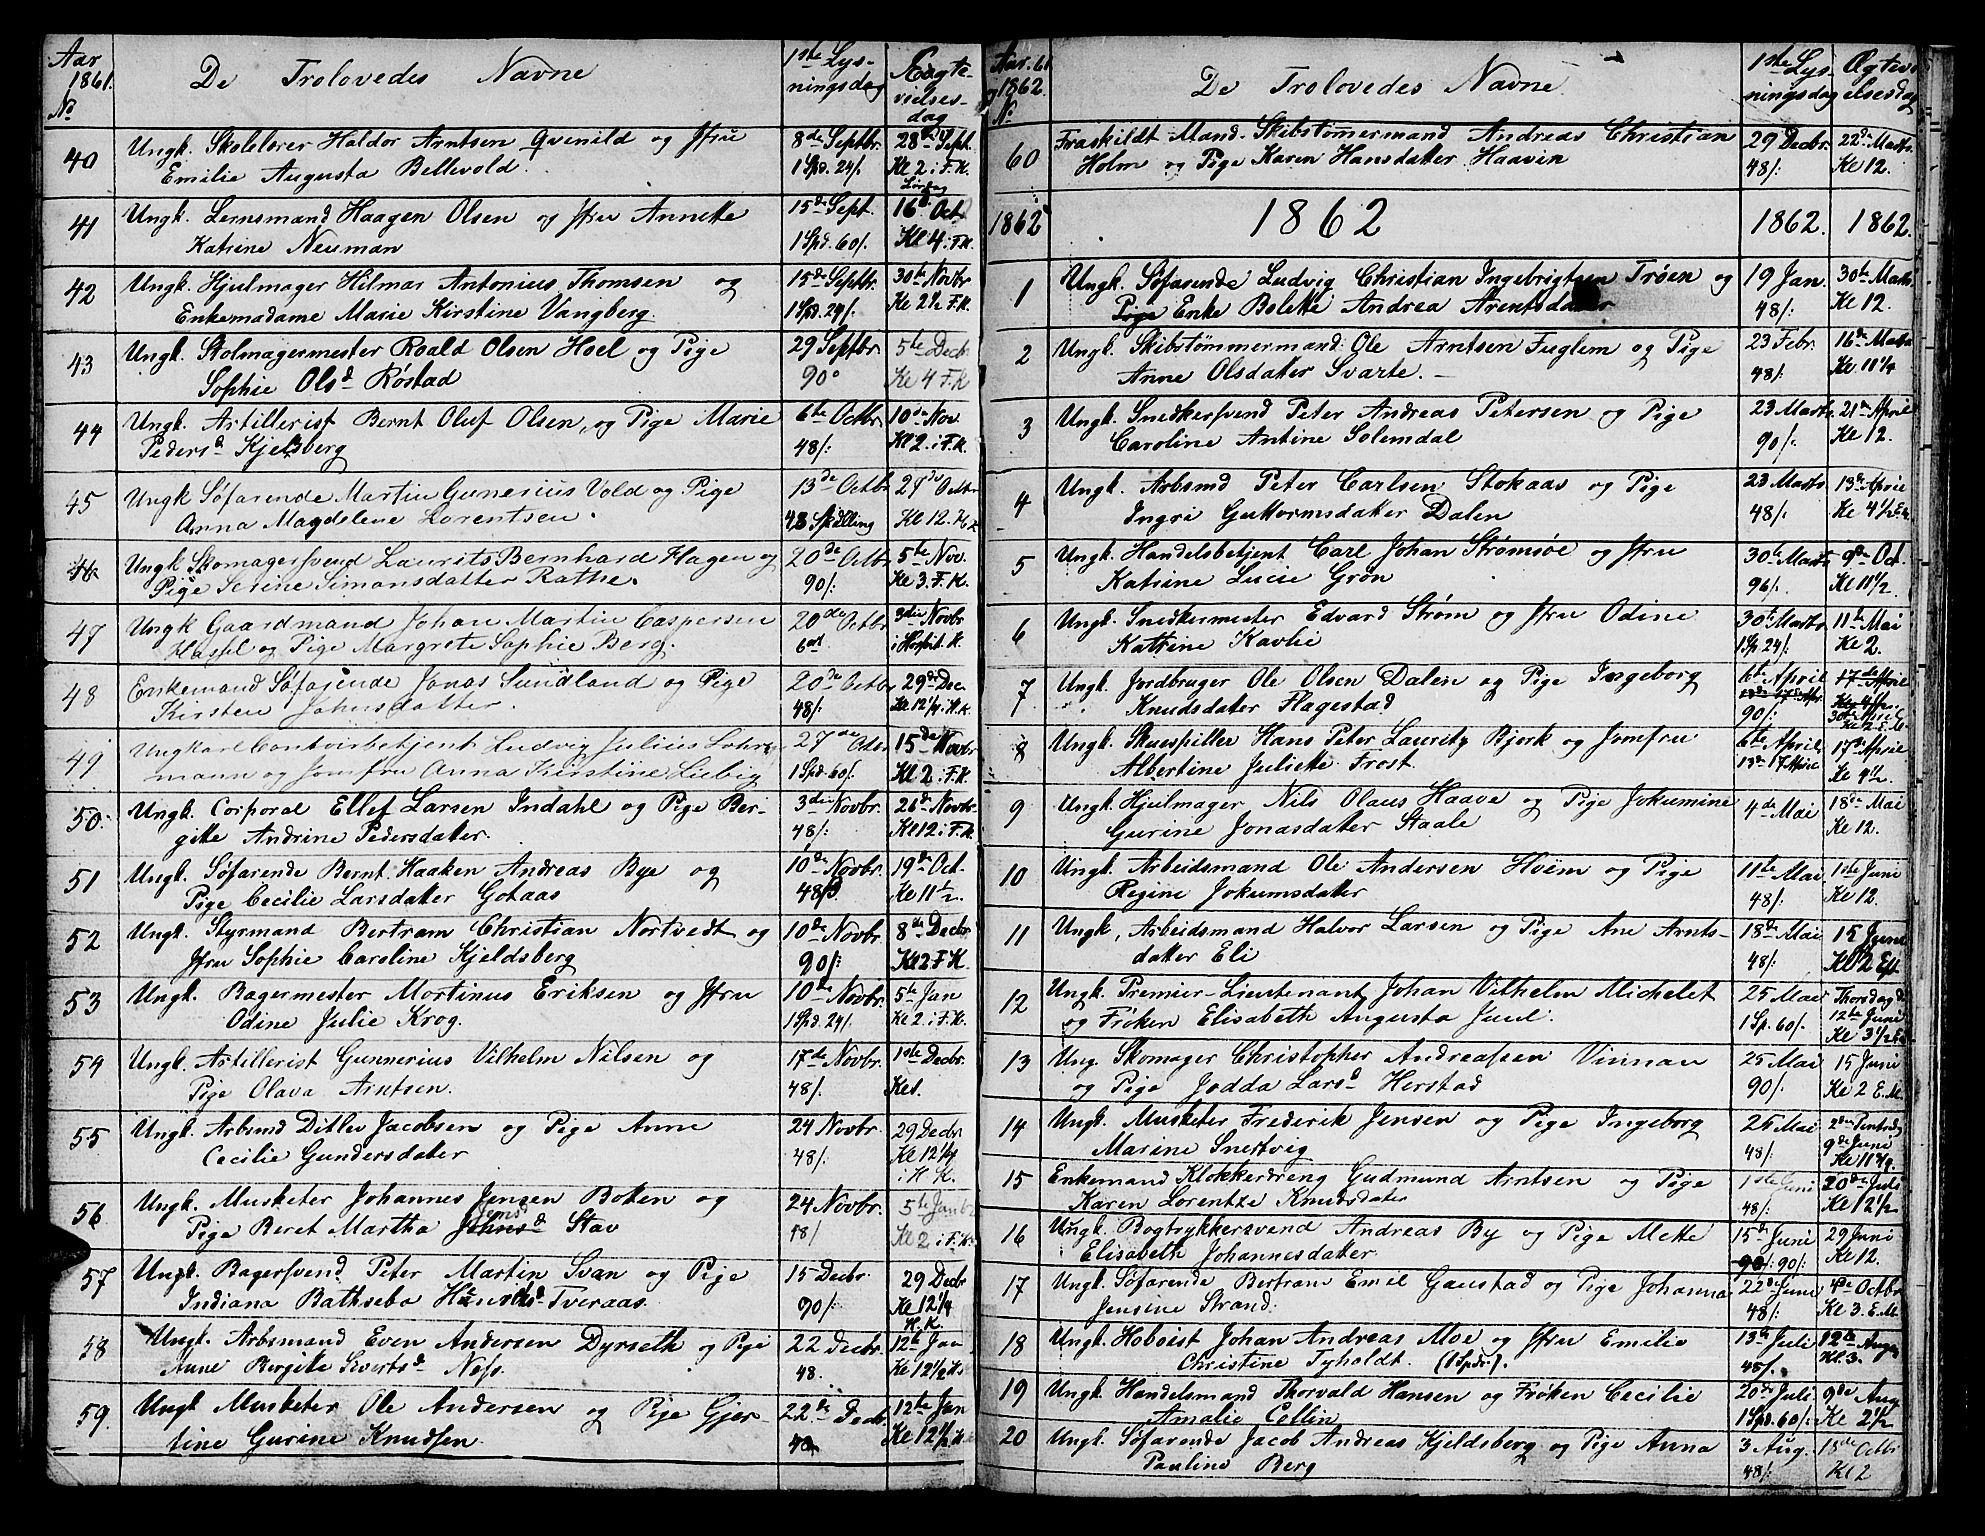 Aar 1861. De Trolovedes Navne 1ste Lys- Eagte-
No ningsdag vielses-
dag
40 Ungk. Skolelærer Haldor Arntsen Qvenild og Jfru 8de Septbr. 28de Sept.
Emilie Augusta Bellevold. 1 Spd. 24/. Kl 2 i F. K.
Lørdag
41 Ungk. Lensmand Haagen Olsen og Jfru Annette 15de Sept. 16de Oct.
Katrine Neuman 1 Spd. 60/. Kl 4. i F. K.
42 Ungk. Hjulmager Hilmar Antonius Thomsen og 15de Septbr. 30te Novbr
Enkemadame Marie Kirstine Vangberg. 1 Spd. 24/. Kl 2 F. K.
43 Ungk. Stolmagermester Roald Olsen Hoel og Pige 29 Septbr. 5te Decbr
Sophie Olsd Röstad 90 Kl 4 F. K
44 Ungk. Artillerist Bernt Oluf Olsen, og Pige Marie 6te Octbr. 10de Nov.
Pedersd Kjelsberg 48/: Kl 2. i F. K.
45 Ungk Söfarende Martin Gunerius Vold og Pige 13de Octbr. 29de Octbr
Anna Magdelene Lorentsen. 48 Skilling Kl 12.
46 Ungk Skomagersvend Laurits Bernhard Hagen og 20de Octbr 5te Nov.
Pige Serine Simonsdatter Rathe. 90/: Kl 3. F. K.
47 Ungk Gaardmand Johan Martin Caspersen 20de Octbr 3die Novbr.
Hassel og Pige Margrete Sophie Berg. i Hospit. K.
48 Enkemand Söfarende Jonas Sundland og Pige 20de Octbr 29de Dec.
Kirsten Johnsdatter. 48/: Kl 12 1/4 i H. K
49 Ungkarl Contoirbetjent Ludvig Julius Lohr- 27de Octbr 15de Novbr
mann og Jomfru Anna Kirstine Liebig 1 Spd. 60/. Kl 2 i F. K.
50. Ungk. Corporal Ellef Larsen Indahl og Pige Ber- 3die Novbr. 26de Novbr.
gitte Andrine Pedersdatter. 48/: Kl 12 i F. K.
51 Ungk. Söfarende Bernt Haaken Andreas Bye og 10de Novbr. 19de Oct.
Pige Cecilie Larsdatter Gotaas 48 Kl 11 1/2.
52 Ungk. Styrmand Bertram Christian Nortvedt og 10de Novbr. 8de Decbr.
Jfru Sophie Caroline Kjeldsberg 90/: Kl 2 F. K.
53 Ungk. Bagermester Mortinus Eriksen og Jfru 10de Novbr. 5te Jan
Odine Julie Krog. 1 Spd. 24/. Kl 2. i F. K.
54 Ungk. Artillerist Gunnerius Vilhelm Nilsen og 17de Novbr. 1ste Decbr.
Pige Olava Arntsen. 48/.
55 Ungk. Arbsmd Ditlev Jacobsen og Pige Anne 24 Novbr. 29 Decbr
Cecilie Gundersdatter 48/: Kl 12 1/4
i H. K.
56 Ungk. Musketer Johannes Jensen Boken og 24 Novbr. 5te Janbr
Pige Beret Martha Johnsd Jensd Stav 48/ Kl 2 i F. K.
57 Ungk. Bagersvend Peter Martin Svan og Pige 15 Decbr. 29 Decbr
Indiana Bathseba Tveraas. 90/: Kl 12 1/4
H. K.
58 Ungk. Arbsmand Even Andersen Dyrseth og Pige 22 Decbr. 12te Jan
Anne Birgite Sivertsd Næss. 48. Kl 12 1/2
59. Ungk Musketer Ole Andersen og Pige Gjer- 22de Decbr. 12te Jan
tine Gurine Knudsen. 48 Kl 12 1/2
Aar. 61 De Trolovedes Navne 1ste Lys- Ægtevi
og 1862. ningsdag elsesdag
No
60 Fraskildt Mand. Skibstømermand Andreas Christian 29 Decbr. 22de Marts
Holm og Pige Karen Hansdatter Haavin 48/: Kl 12.
1862 1862 1862. 1862.
1 Ungk. Söfarende Ludvig Christian Ingebrigtsen Tröen og 19 Jan. 30te Marts
Pige Enke Bolette Andrea Arentsdatter 48/: Kl 12.
2 Ungk. Skibstömmermand. Ole Arntsen Fuglem og Pige 23 Febr. 16de Marts
Anne Olsdatter Svarte. 48/: Kl 11 1/4
3 Ungk. Snedkersvend Peter Andreas Petersen og Pige 23 Marts. 21de April
Caroline Antine Solemdal 90/: Kl 12.
4 Ungk. Arbsmd Peter Carlsen Stokaas og Pige 23 Marts 13de April
Ingri Guttormsdatter Dalen 48/: Kl 4 1/2
5 Ungk. Handelsbetjent Carl Johan Strömsöe og Jfru 30te Marts 9de Oct.
Katrine Lucie Grön 96/. Kl 11 1/2.
6 Ungk. Snedkermester Edvard Ström og Jfru Odine 30te Marts. 11te Mai
Kattrine Kavlie 1 Sp 24/. Kl 2.
7 Ungk. Jordbruger Ole Olsen Dalen og Pige Ingeborg 6te April 17de April
Knudsdatter Flagestad 90/:
8 Ungk. Skuespiller Hans Peter Lauritz Bjork og Jomfru 6te April 17de April
Albertine Juliette Frost. Kl 4 1/2.
9 Ungk. Hjulmager Nils Olaus Haave og Pige Jokumine 4de Mai 18de Mai
Gurine Jonasdatter Staale Kl 12.
10 Ungk. Arbeidsmand Ole Andersen Hoëm og Pige 11te Mai 1ste Juni
Regine Jokumsdatter 48/: Kl 12.
11 Ungk. Arbeidsmand Halvor Larsen og Pige Ane Arnts- 18de Mai 15 Juni
datter Eli 48/: Kl 2 Eft
12 Ungk. Premier-Lieutenant Johan Vilhelm Michelet 25 Mai Thorsdag d
og Fröken Elisabeth Augusta Juul. 1 Sp. 60/. 12te Juni
Kl 3 1/2
13 Ung. Skomager Christopher Andreassen Vinnan 25 Mai 15 Juni
og Pige Jodda Larsd Herstad 90/: Kl 2 E. M.
14 Ungk. Musketer Frederik Jensen og Pige Ingeborg 25 Mai 2den Pintsedag
Marine Snertvig 48/: 9de Juni
15 Enkemand Klokkerdreng Gudmund Arntsen og Pige 1ste Juni 20de Juli
Karen Lorentze Knudsdatter 48/: Kl 12 1/2
16 Ungk. Bogtrykkersvend Andreas By og Pige Mette 15de Juni 29 Juni
Elisabeth Johannesdatter. 90/: 90/: Kl 12.
17 Ungk. Söfarende Bertram Emel Gaustad og Pige Johanna 22de Juni 4de Octbr.
Jensine Strand. 48/: Kl 3. E. M.
18 Ungk. Hoboist Johan Andreas Moe og Jfru Emilie 13de Juli 12te Aug.
Christine Tyholdt. (1 Spdr). 48/. Kl. 3.
19 Ungk. Handelsmand Thorvald Hansen og Fröken Cecilie 20de Juli 9de Aug
Amalie Cellin 1 Spd. 60/. Kl 2 1/2
20 Ungk. Söfarende Jacob Andreas Kjeldsberg og Pige Anna 3 Aug. 18de Octbr
Pauline Berg 48/: Kl 2